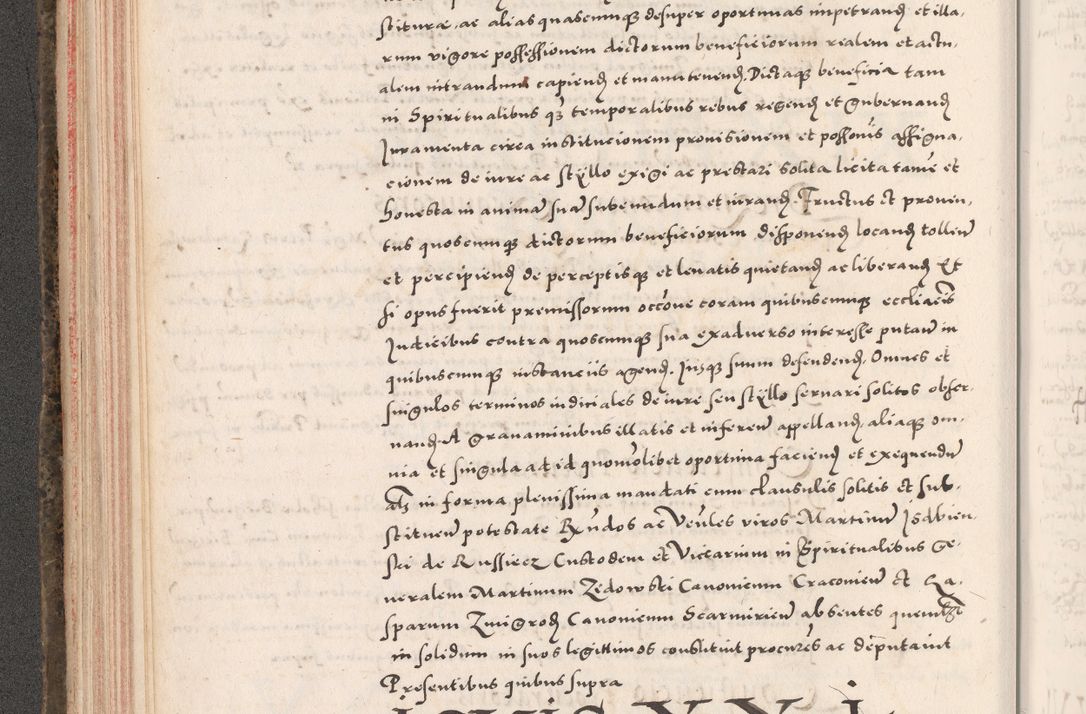 stiturae ac alias quascumque desuper oportunas impetrand et illa,
rum vigore possessionem dictorum beneficiorum realem et actu,
alem intrandum capiend et manutenend. Dictaque beneficia tam
in Spiritualibus qz temporalibus rebus regend et Gubernand
Juramenta circa institucionem provisionem et possonis assigna,
cionem de iure ac styllo exigi ac prestari solita licita tame et
honesta in anima sua subeundum et iurand. Fructus et proven,
tus quoscumque dictorum beneficiorum disponend locand tollen
et percipiend de perceptisque et levatis quietand ac liberand Et
si opus fuerit premissorum occone coram quibuscumque eccliacis
Judicibus contra quoscumque sua exadverso interesse putan in
quibuscumque instanciis agend. Jusque suum defendend. Omnes et
singulos terminos iudiciales de iure seu styllo servari solitos obser,
vand. A Gravaminibus illatis et inferen appelland. aliaque om,
nia et singula ad id quomolibet oportuna faciend et exequendu
als in forma plenissima mandati cum clausulis solitis et sub,
stituen potestate Rndos ac Venles viros Martinum Isdbien,
ski de Russiecz Custodem et Vicarium in Spiritualibus Ge,
neralem Martinum Zedowski Canonicum Cracovien et Ga,
sparum Zmigrod Canonicum Scarmirien absentes quemlibet
in solidum in suos legittimos constituit procures ac deputavit
Presentibus quibus supra